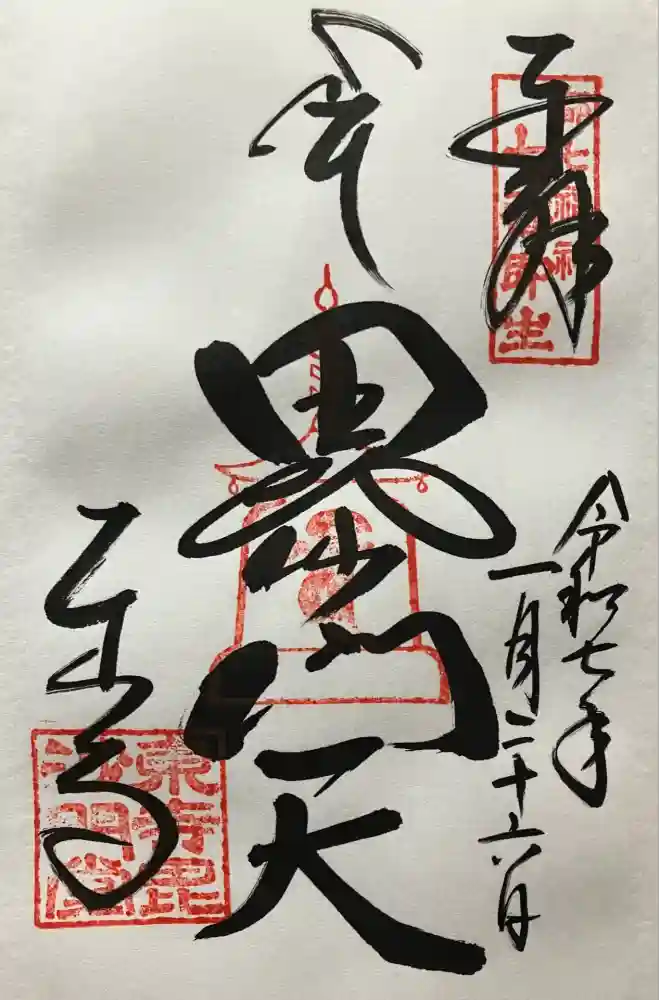 奉拝
都七福神
令和七年
一月二十六日
毘沙門天
東寺
東寺毘
沙門堂